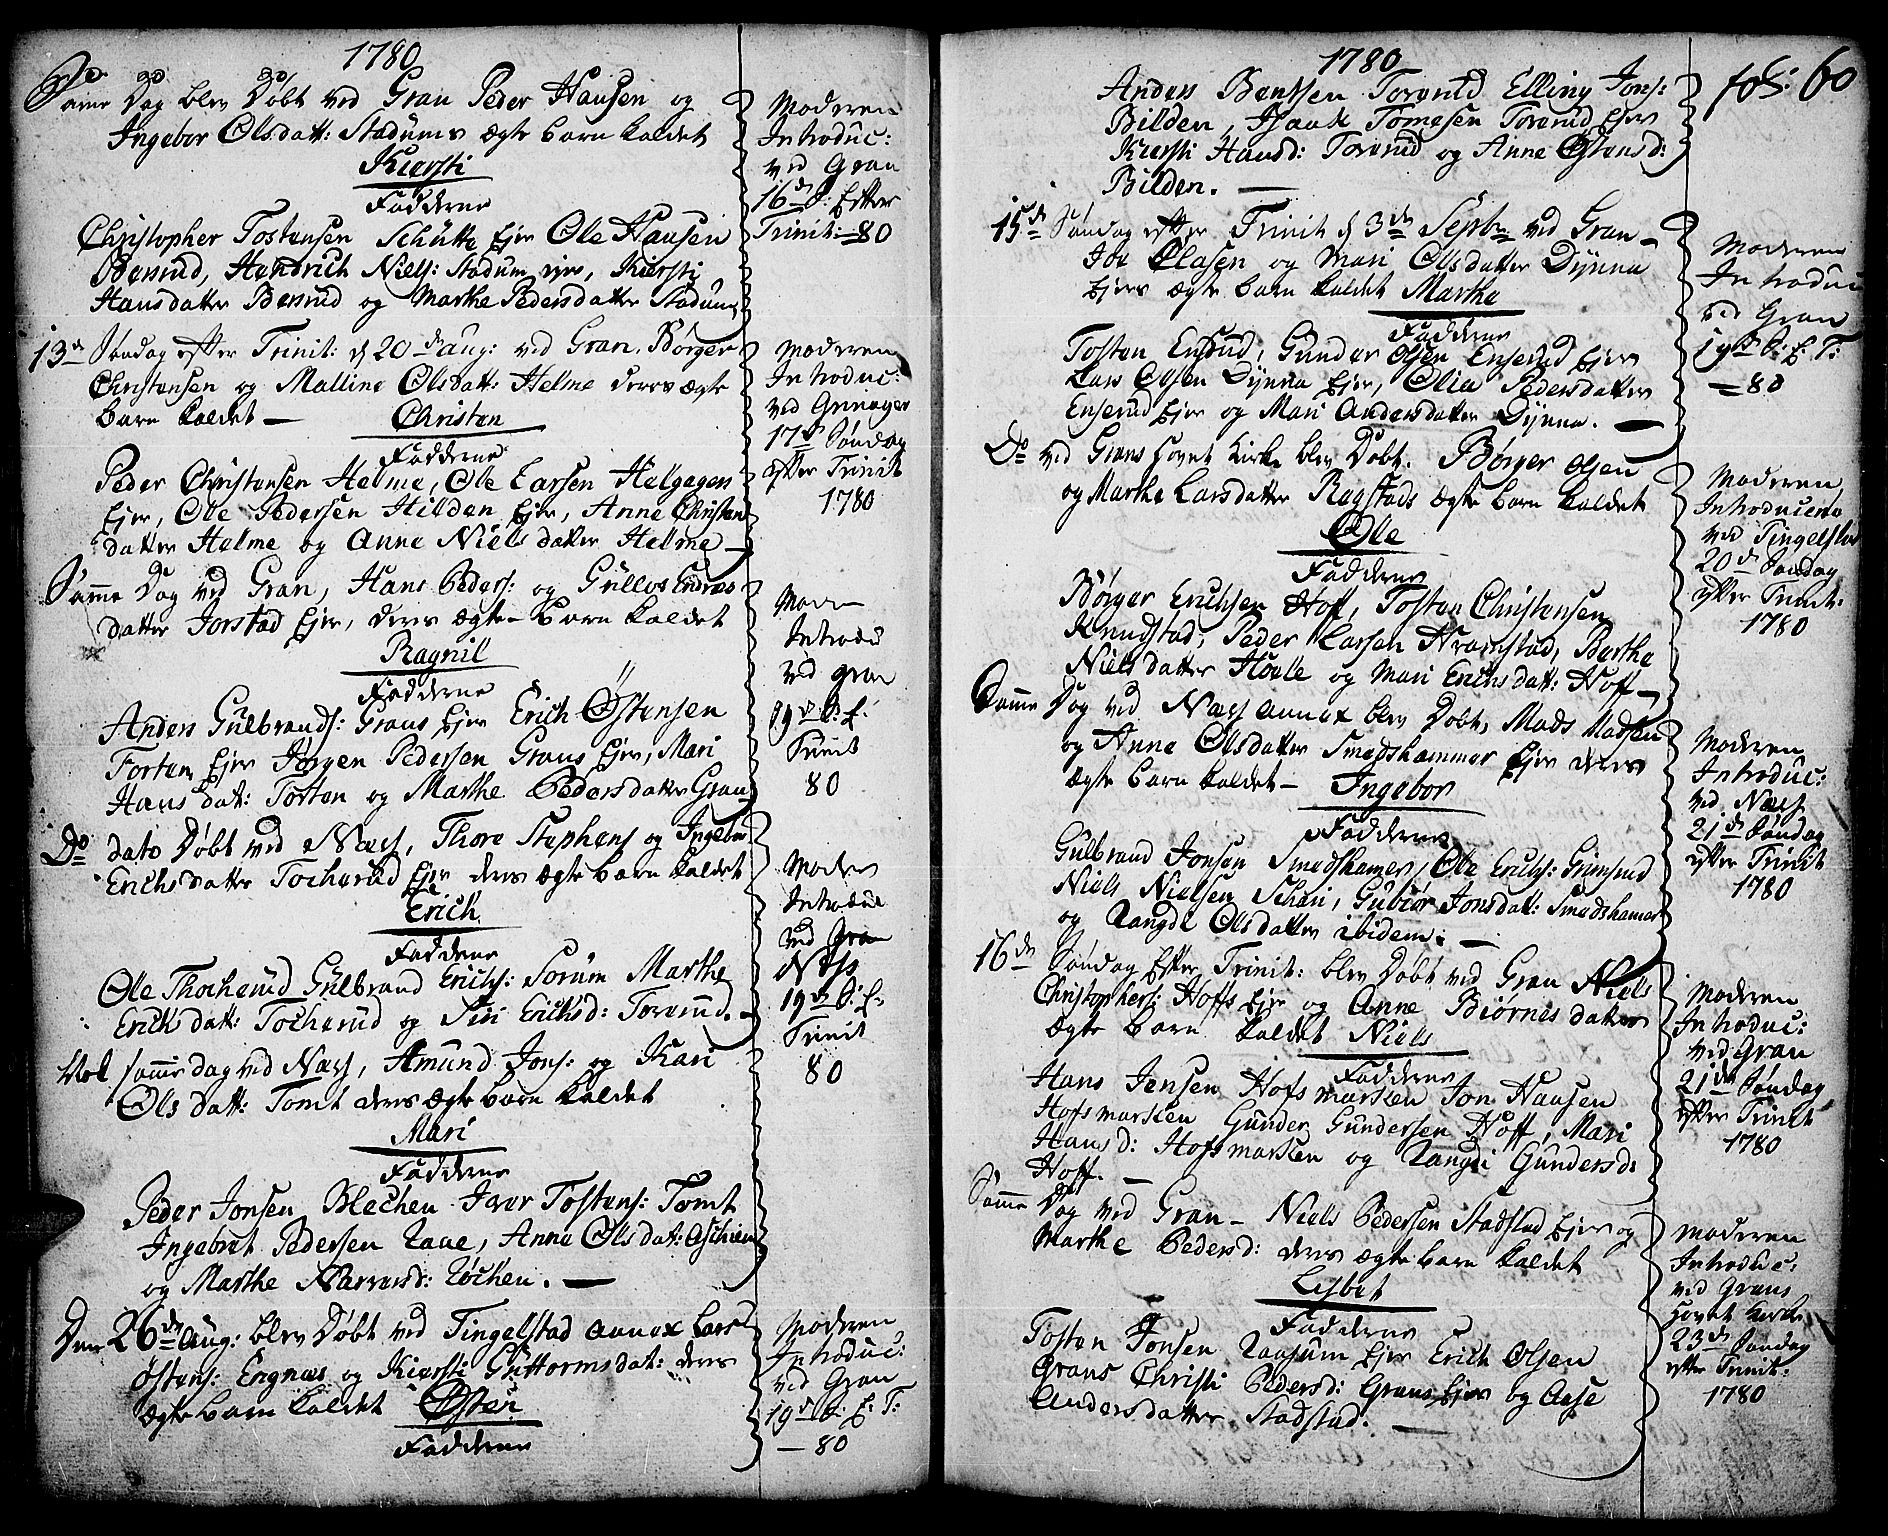 1780
Samme Dag blev Døbt ved Gran Peder Hansen og
Ingebor Olsdatt: Stadums ægte barn kaldet
Kiersti
Fadderne
Christopher Tostensen Schütte Ejer Ole Hansen
Hendrich Niels: Stadum Kiersti
Hansdatter og Marthe Pedersdatter Stadum
Moderen
Introduc:
ved Gran
16de S. Efter
Trinit: – 80
13de Søndag efter Trinit: d 20de aug: ved Gran. Børger
Christensen og Malline Olsdatt: Helme deres ægte
barn kaldet – Christen
Fadderne
Peder Christensen Helme, Ole Larsen Helgagen
Ejer, Ole Pedersen Hilden Ejer, Anne Christens
datter Helme og Anne Nielsdatter Helme –
Moderen
Introduc:
ved Grinager
17de Søndag
efter Trinit
1780
Samme Dag ved Gran, Hans Peders: og
datter Jorstad Ejer, deres ægte barn kaldet
Ragnil
Fadderne
Anders Gulbrands: Grans Ejer Erich Østensen
Ejer Jørgen Pedersen Grans Ejer, Mari
Hans dat: og Marthe Pedersdatter Gran
Introdu
ved gran
19de S. E.
Trinit
80
Do dato Døbt ved Næss, Thore Stephens og Ingebor
Erichsdatter Tocherud Ejer deres ægte barn kaldet
Erich
Fadderne
Ole Thocherud Gulbrand Erichs: Sorum Marthe
Erichsdatt: Tocherud og Siri Erichsd: –
Introduc
ved Gran
Næss
19de S: E:
Trinit
80
samme dag ved Næss, Amund Jons: og Kari
Olsdatt: Tomt deres ægte barn kaldet
Mari
Fadderne
Peder Jonsen Blechen Iver Tostens: Tomt
Ingebret Pedersen Anne Olsdat:
og Marthe –
Den 26de Aug: blev Døbt ved Tingelstad annex Lars
Østens: Engnæs og Kiersti Guttormsdat: deres
ægte barn kaldet Østen
Fadderne
Moderen
Introduc:
ved Gran
19de S. E: T:
– 80
1780
fol: 60
Anders Bentsen Torerud Elling Jons:
Bilden, Isaak Tomesen Torerud Ejer
Kiersti Hansd: Torerud og Anne Østensd:
Bilden. –
15de Søndag efter Trinit d 3de Septbr ved Gran –
Olasen og Mari Olsdatter Dynna
Ejers ægte barn kaldet Marthe
Fadderne
Tosten Enerud, Gunder Olsen Enerud Ejer
Lars Olsen Dynna Ejer, Olia Pedersdatter
Enerud Ejer og Mari Andersdatter Dynna. –
Moderen
Introduc
ved Gran
19de S: E: T:
– 80
Do ved Grans Hovet Kirke blev Døbt. Børger Olsen
og Marthe Larsdatter Ragstads ægte barn kaldet
Ole
Fadderne
Børger Erichsen Hoff, Tosten Christensen
Knudstad, Peder Larsen Framstad, Berthe
Nielsdatter og Mari Erichsdatt: Hoff –
Moderen
Introduceret
ved Tingelstad
20de Søndag
efter Trinit:
1780
Samme Dag ved Næss annex blev Døbt, Mads Madsen
og Anne Olsdatter Smedshammer Ejer deres
ægte barn kaldet – Ingebor
Fadderne
Gulbrand Jonsen Smedshamer, Ole Erichs: Grimsrud
Niels Nielsen Gubiør Jonsdatt: Smedshamer
og Rangdi Olsdatter ibidem. –
Moderen
Introduc:
ved Næss
21de Søndag
efter Trinit
1780
16de Søndag Efter Trinit: blev Døbt ved Gran Niels
Christophers: Hoffs Ejer og Anne Biørnesdatter
ægte barn kaldet Niels
Fadderne
Hans Jensen Hofsmarken Jon Hansen
Hofsmarken Gunder Gundersen Hoff, Mari
Hansd: Hofsmarken og Rangdi Gundersd:
Hoff. –
Moderen
Introduc:
ved Gran
21de Søndag
efter Trinit
1780
Samme Dag ved Gran – Niels Pedersen Stadstad Ejer og
Marthe Pedersd: deres ægte barn kaldet
Lisbet
Fadderne
Tosten Jonsen Raasum Ejer Erich Olsen
Grans Christi Pedersd: Grans Ejer og Aase
Andersdatter Stadstad. –
Moderen
Introduc:
ved Grans
Hovet Kirke
23de Søndag
efter Trinit:
1780